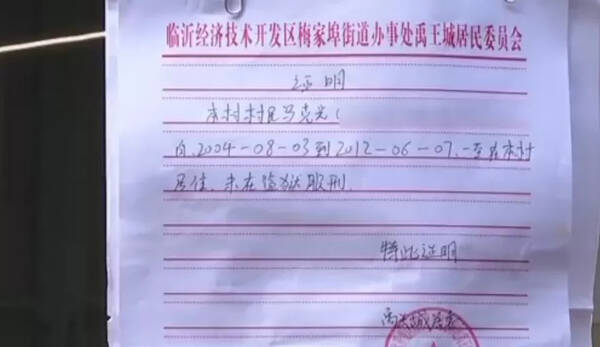 临沂经济技术开发区梅家埠街道办事处禹王城居民委员会
证明
本村村民马克光(
自2004-08-03到2012-06-07,一直在本村
居住,未在监狱服刑.
特此证明
禹王城居委